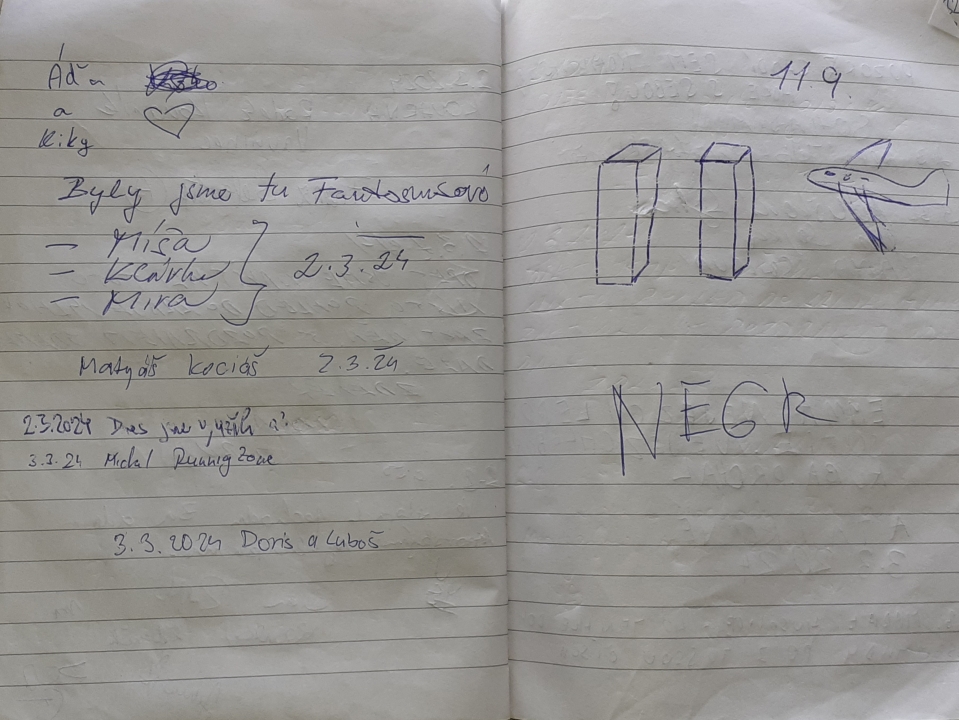 Áďa
a
Kiky
Byly jsme tu Fantomišovó
– Míša
– Klárka
– Mira
2.3.24
Matyáš Kociáš 2.3.24
2.3.2024 Dnes jsme
3.3.24 Michal Runnig Zone
3.3.2024 Doris a Luboš
11.9.
NEGR